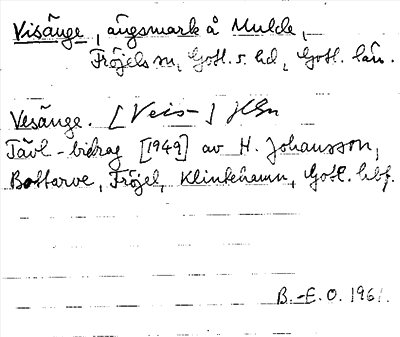 Visänge, ängsmark å Mulde,
Fröjels sn, Gotl. s. hd, Gotl. län.
Vesänge. [Veis-] HGn
Tävl-bidrag [1949] av H. Johansson,
Bottarve, Fröjel, Klintehamn, Gotl.
B.-E. O. 1961.